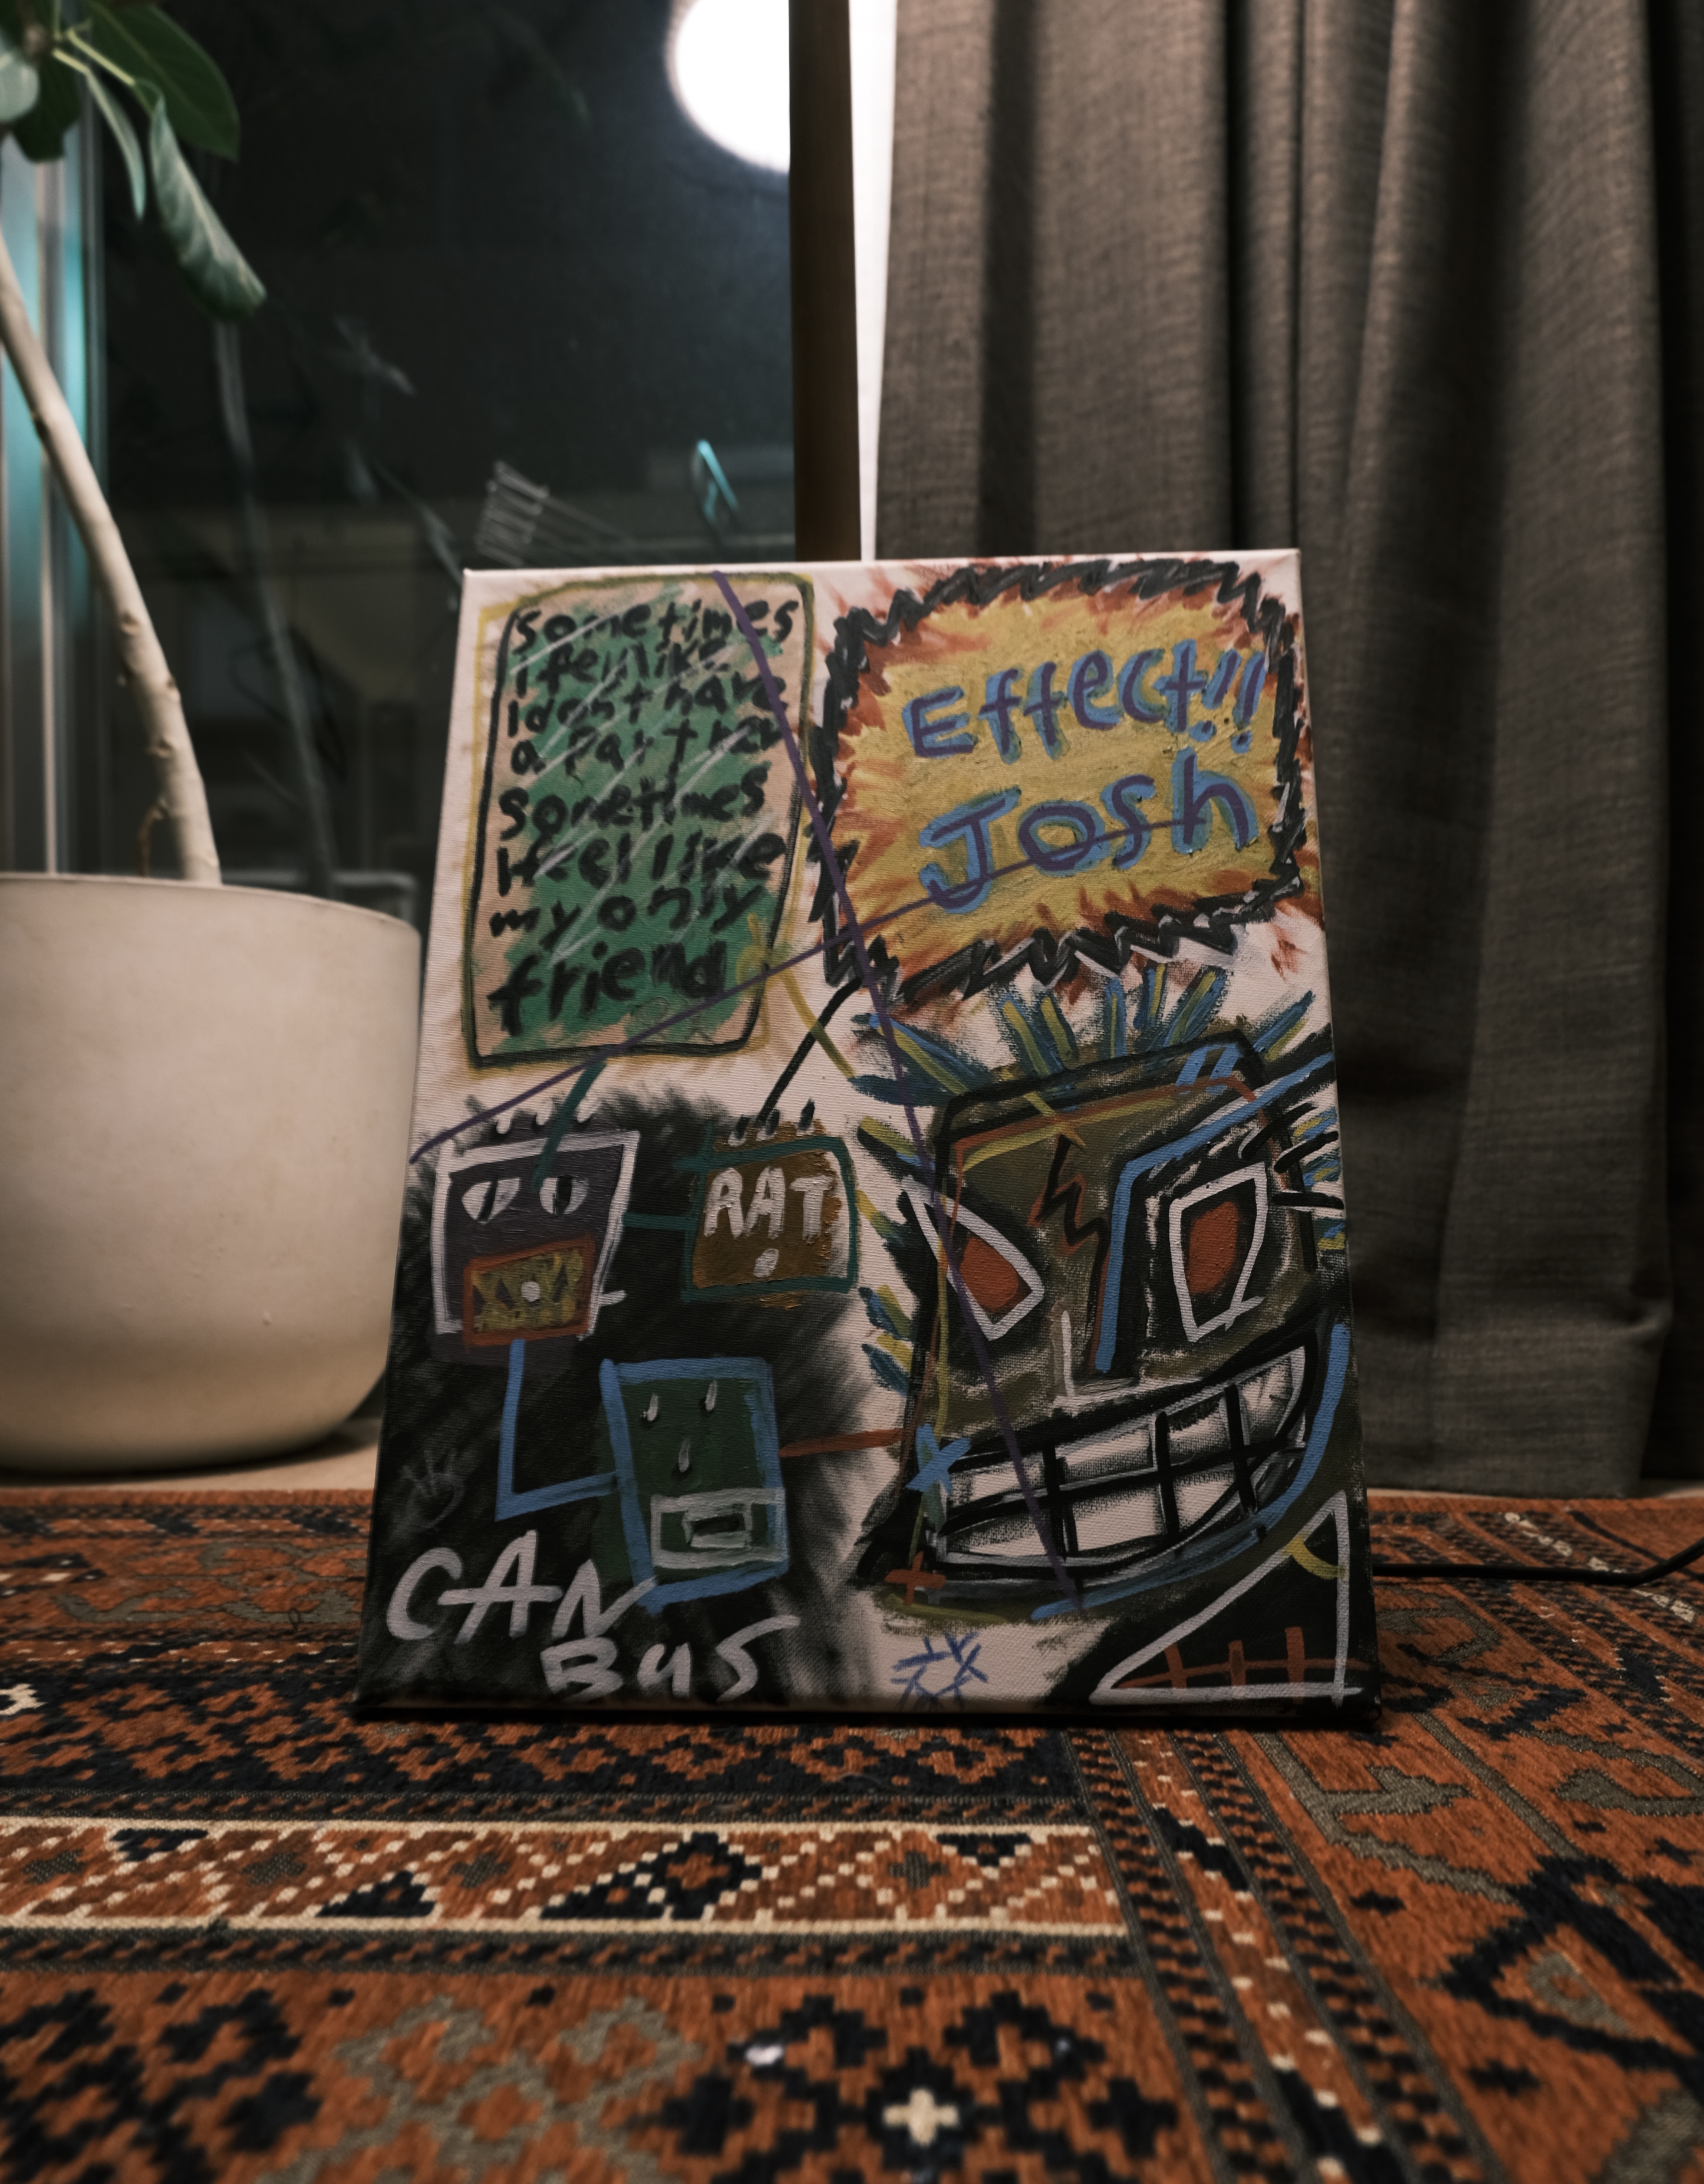 sometimes
I feel like
I dont have
a partner
sometimes
I feel like
my only
friend
Effect!!
Josh
RAT
CAN
BUS